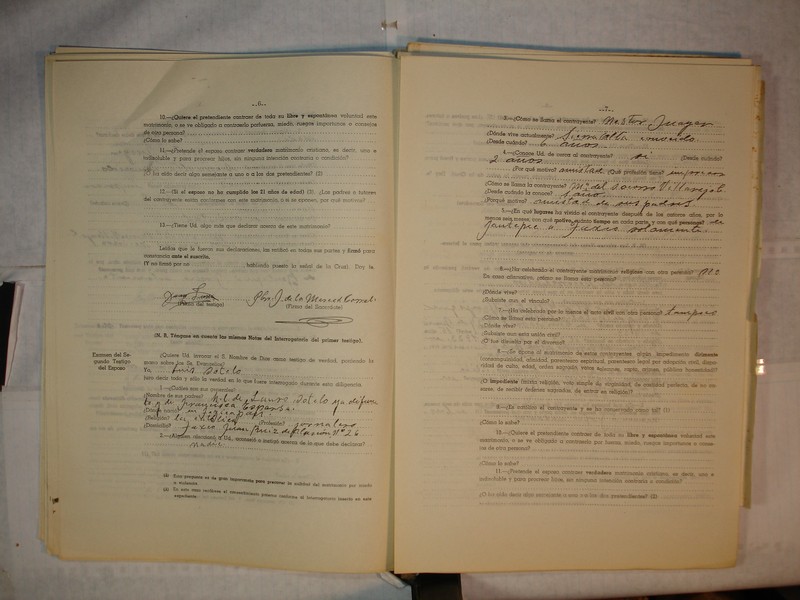 —6—
10.—¿Quiere el pretendiente contraer de toda su libre y espontánea voluntad este
matrimonio, o se ve obligado a contraerlo por fuerza, miedo, ruegos importunos o consejos
de otra persona?
11.—¿Pretende el esposo contraer verdadero matrimonio cristiano, es decir, uno e
indisoluble y para procrear hijos, sin ninguna intención contraria o condición?
¿O ha oído decir algo semejante a uno o a los dos pretendientes? (2)
12.—(Si el esposo no ha cumplido los 21 años de edad) ¿Los padres o tutores
del contrayente están conformes con este matrimonio, o si se oponen, por qué motivos?
13.—¿Tiene Ud. algo más que declarar acerca de este matrimonio?
Leídas que le fueron sus declaraciones, las ratificó en todas sus partes y firmó para
constancia ante el suscrito.
IV no firmó por no habiendo puesto la señal de la Cruz). Doy fe.
Pbro. J. de la Merced
(Firma del testigo) (Firma del Sacerdote)
(N. B. Téngase en cuenta las mismas Notas del Interrogatorio del primer testigo).
Examen del Segundo Testigo del Esposo
¿Quiere Ud. invocar el S. Nombre de Dios como testigo de verdad, poniendo la
mano sobre los Ss. Evangelios?
Yo, Luis Sotelo
juro decir toda y sólo la verdad en lo que fuere interrogado durante esta diligencia.
1.—¿Cuáles son sus generales?
(Nombre de sus padres) Sotelo ya difunto
(Religión) la católica (Profesión) jornalero
(Domicilio) Juan Ruiz de Alarcón Nº 26
2.—¿Alguien, demanda, a Ud., aconsejó o instigó acerca de lo que debe declarar?
nadie
(2) Esta pregunta es de gran importancia para procurar la nulidad del matrimonio por miedo
o violencia.
(3) En este caso recíbase el consentimiento paterno conforme al Interrogatorio inserto en este
expediente.
—7—
3.—¿Cómo se llama el contrayente? Nestor
¿Dónde vive actualmente? conocido
¿Desde cuándo? 6 años
4.—¿Conoce Ud. de cerca al contrayente? si ¿Desde cuándo?
2 años
¿Por qué motivo? amistad ¿Qué profesión tiene?
¿Cómo se llama la contrayente? Ma. del Socorro Villarreal
¿Desde cuándo la conoce? años
¿Por qué motivo? amistad de sus padres
5.—¿En qué lugares ha vivido el contrayente después de los catorce años, por lo
menos seis meses; con qué motivo, cuánto tiempo en cada parte, y con qué personas? de
solamente
6.—¿Ha celebrado el contrayente matrimonio religioso con otra persona? no
De caso afirmativo, ¿cómo se llama esta persona?
¿Dónde vive?
¿Subsiste aun el vínculo?
7.—¿Ha celebrado por lo menos el acto civil con otra persona? tampoco
¿Cómo se llama esta persona?
¿Dónde vive?
¿Subsiste aun esta unión civil?
¿O fue disuelta por el divorcio?
8.—¿Se opone al matrimonio de estos contrayentes algún impedimento dirimente
(consanguinidad, afinidad, parentesco espiritual, parentesco legal por adopción civil, disparidad de culto, edad, orden sagrado, votos solemnes, rapto, crimen, pública honestidad)?
¿O impediente (mixta religión, voto simple de virginidad, de castidad perfecta, de no casarse, de recibir órdenes sagradas, de entrar en religión)?
9.—¿Es católico el contrayente y se ha conservado como tal? (1)
¿Cómo lo sabe?
10.—¿Quiere el pretendiente contraer de toda su libre y espontánea voluntad este
matrimonio, o se ve obligado a contraerlo por fuerza, miedo, ruegos importunos o consejos de otra persona?
¿Cómo lo sabe?
11.—¿Pretende el esposo contraer verdadero matrimonio cristiano, es decir, uno e
indisoluble y para procrear hijos, sin ninguna intención contraria o condición?
¿O ha oído decir algo semejante a uno o a los dos pretendientes? (2)